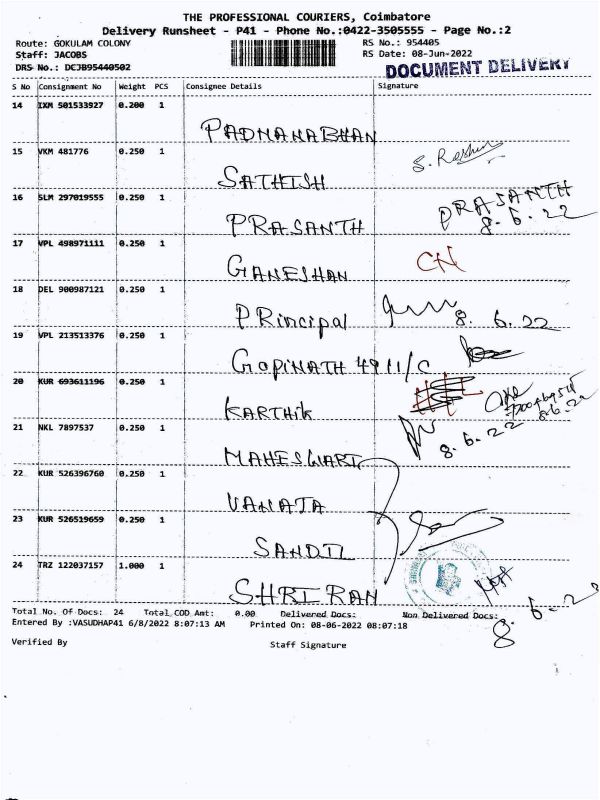 THE PROFESSIONAL COURIERS, Coimbatore
Delivery Runsheet - P41 - Phone No.:0422-3505555 - Page No.:2
Route: GOKULAM COLONY RS No.: 954405
Staff: JACOBS RS Date: 08-Jun-2022
DRS No.: DCJB95440502 DOCUMENT DELIVERY
S No Consignment No Weight PCS Consignee Details Signature
14 IXM 501533927 0.200 1
PADNANABHAN
15 VKM 481776 0.250 1
SATHISH
16 SLM 297019555 0.250 1 PRASANTH
PRASANTH 8.6.22
17 VPL 498971111 0.250 1 CN
GANESHAN
18 DEL 900987121 0.250 1
PRincipal 8.6.22
19 VPL 213513376 0.250 1
GOPINATH 4911/C
20 KUR 693611196 0.250 1
KARTHIK
21 NKL 7897537 0.250 1 8.6.22
MAHESWARI
22 KUR 526396760 0.250 1
VANATA
23 KUR 526519659 0.250 1
SANDIL
24 TRZ 122037157 1.000 1
SHRI RAN
Total No. Of Docs: 24 Total COD Amt: 0.00 Delivered Docs: Non Delivered Docs:
Entered By :VASUDHAP41 6/8/2022 8:07:13 AM Printed On: 08-06-2022 08:07:18
Verified By Staff Signature